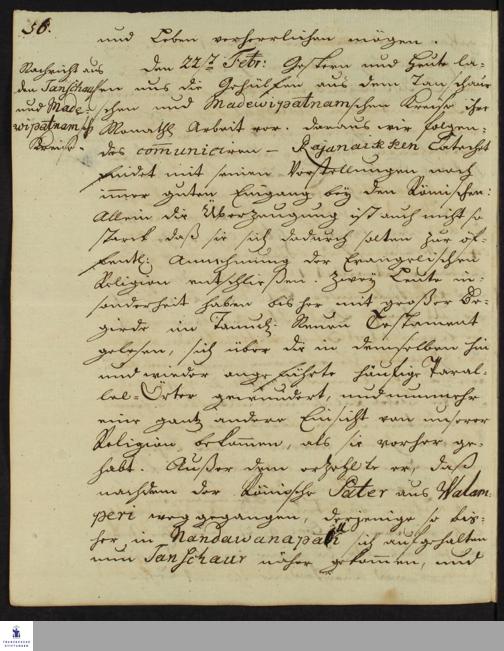 56.
und Leben verherrlichen mögen.
Nachricht aus
den Tanschaur
und Made-
wipatnam sch
Kreise.
den 22t Febr: Gestern und heute la-
sen uns die Gehülfen aus dem Tanschaur
schen und Madewipatnamschen Kreise ihre
Monaths Arbeit vor. daraus wir folgen-
des comuniciren - Rajanaickken Catechet
findet mit seinen Vorstellungen noch
immer guten Eingang bey den Römischen:
Allein die Überzeugung ist auch nicht so
starck, daß sie sich dadurch solten zur öf-
fentl: Annehmung der Evangelischen
Religion entschliessen. Zwey Leute in-
sonderheit haben bisher mit großer Be-
gierde im Tamul: Neuen Testament
gelesen, sich über die in demselben hin
und wieder angeführte häufige Paral-
lel-Örter gewundert, und nunmehr
eine gantz andere Einsicht von unserer
Religion bekommen, als sie vorher ge-
habt. Außer dem erzehlte er, daß
nachdem der Römische Pater aus Walam-
peri weggegangen, derjenige so bis-
her in Nandawanapadi sich aufgehalten
nun Tanschaur näher gekomen, und
FRANCKESCHE
STIFTUNGEN